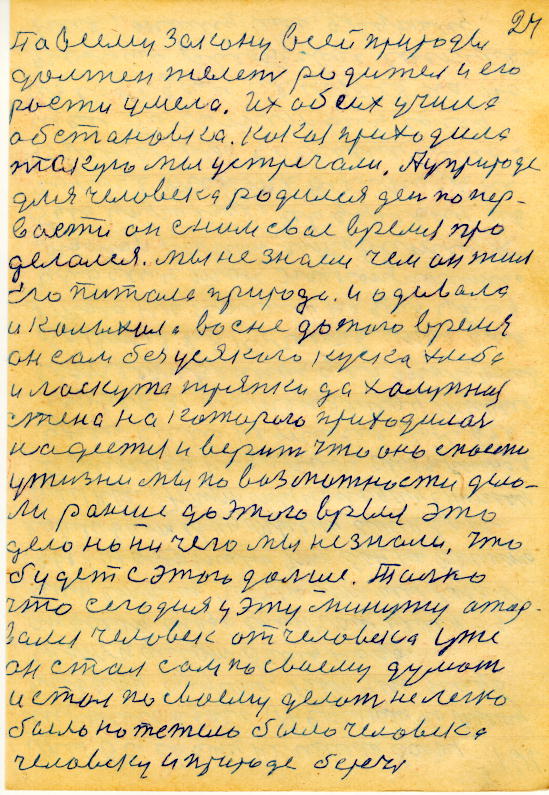 24
По всему закону всей природы
должен телет родится и его
рости умела. Их обеих учила
обстановка. Какая приходила
такую мы устречали. А у природе
для человека родился ден по пер-
вости он с ним свае время про
делался. мы не знаем чем он жил
Его питала природа. и одевала
и колыхала во сне до того время
он сам без усякого куска хлеба
и лоскута тряпки да халупная
стена на которого приходилая
надеется и верит что оно спасет
у жизни мы по возможности дела-
ли ранше до этого время это
дело но ни чего мы не знали, что
будет с этого далше. Толко
что сегодня у эту минуту атар-
вался человек от человека уже
он стал сам по своему думат
и стал по своему делат не легко
было но тежело было человека
человеку и природе беречь